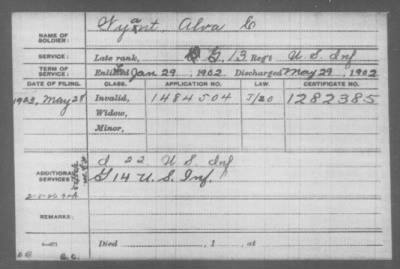 Nyant, Alva C
NAME OF SOLDIER:
SERVICE: Late rank, G, 13 Reg't U. S. Inf
TERM OF SERVICE: Enlisted Jan 29, 1902. Discharged May 29, 1902
DATE OF FILING. CLASS. APPLICATION NO. LAW. CERTIFICATE NO.
1903, May 28 Invalid, 1484504 1282385
Widow,
Minor,
ADDITIONAL SERVICES: 22 U S Inf
G 14 U. S. Inf.
REMARKS:
Died , 1 , at